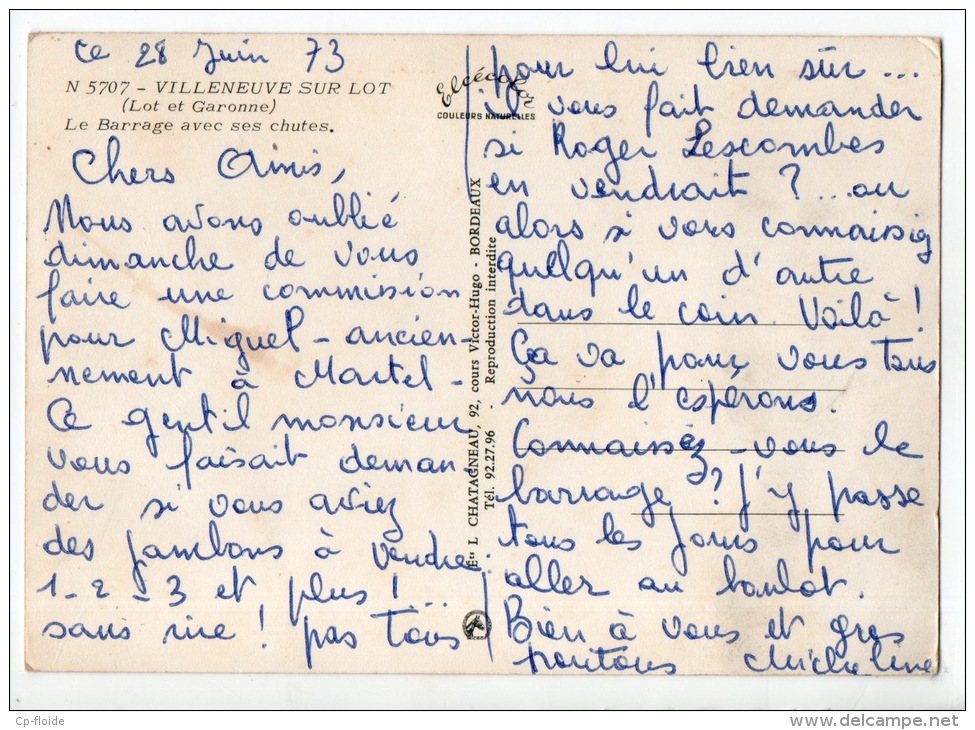 Ce 28 Juin 73
N 5707 - VILLENEUVE SUR LOT
(Lot et Garonne)
Le Barrage avec ses chutes.
Chers Amis,
Nous avons oublié
dimanche de vous
faire une commission
pour Miguel - ancien-
nement à Martel -
Ce gentil monsieur
vous faisait deman-
der si vous aviez
des jambons à vendre
1 - 2 - 3 et plus !
sans rire ! pas tous
Elcécolor
COULEURS NATURELLES
Éts L. CHATAGNEAU, 92, cours Victor-Hugo - BORDEAUX
Tél. 92.27.96 - Reproduction interdite
pour lui bien sûr...
il vous fait demander
si Roger Lescombes
en vendrait ? ... ou
alors si vous connaissiez
quelqu'un d'autre
dans le coin. Voilà !
Ça va pour vous tous
nous l'espérons.
Connaissez-vous le
barrage ? J'y passe
tous les jours pour
aller au boulot.
Bien à vous et gros
poutous Micheline
Cp-floide
www.delcampe.net